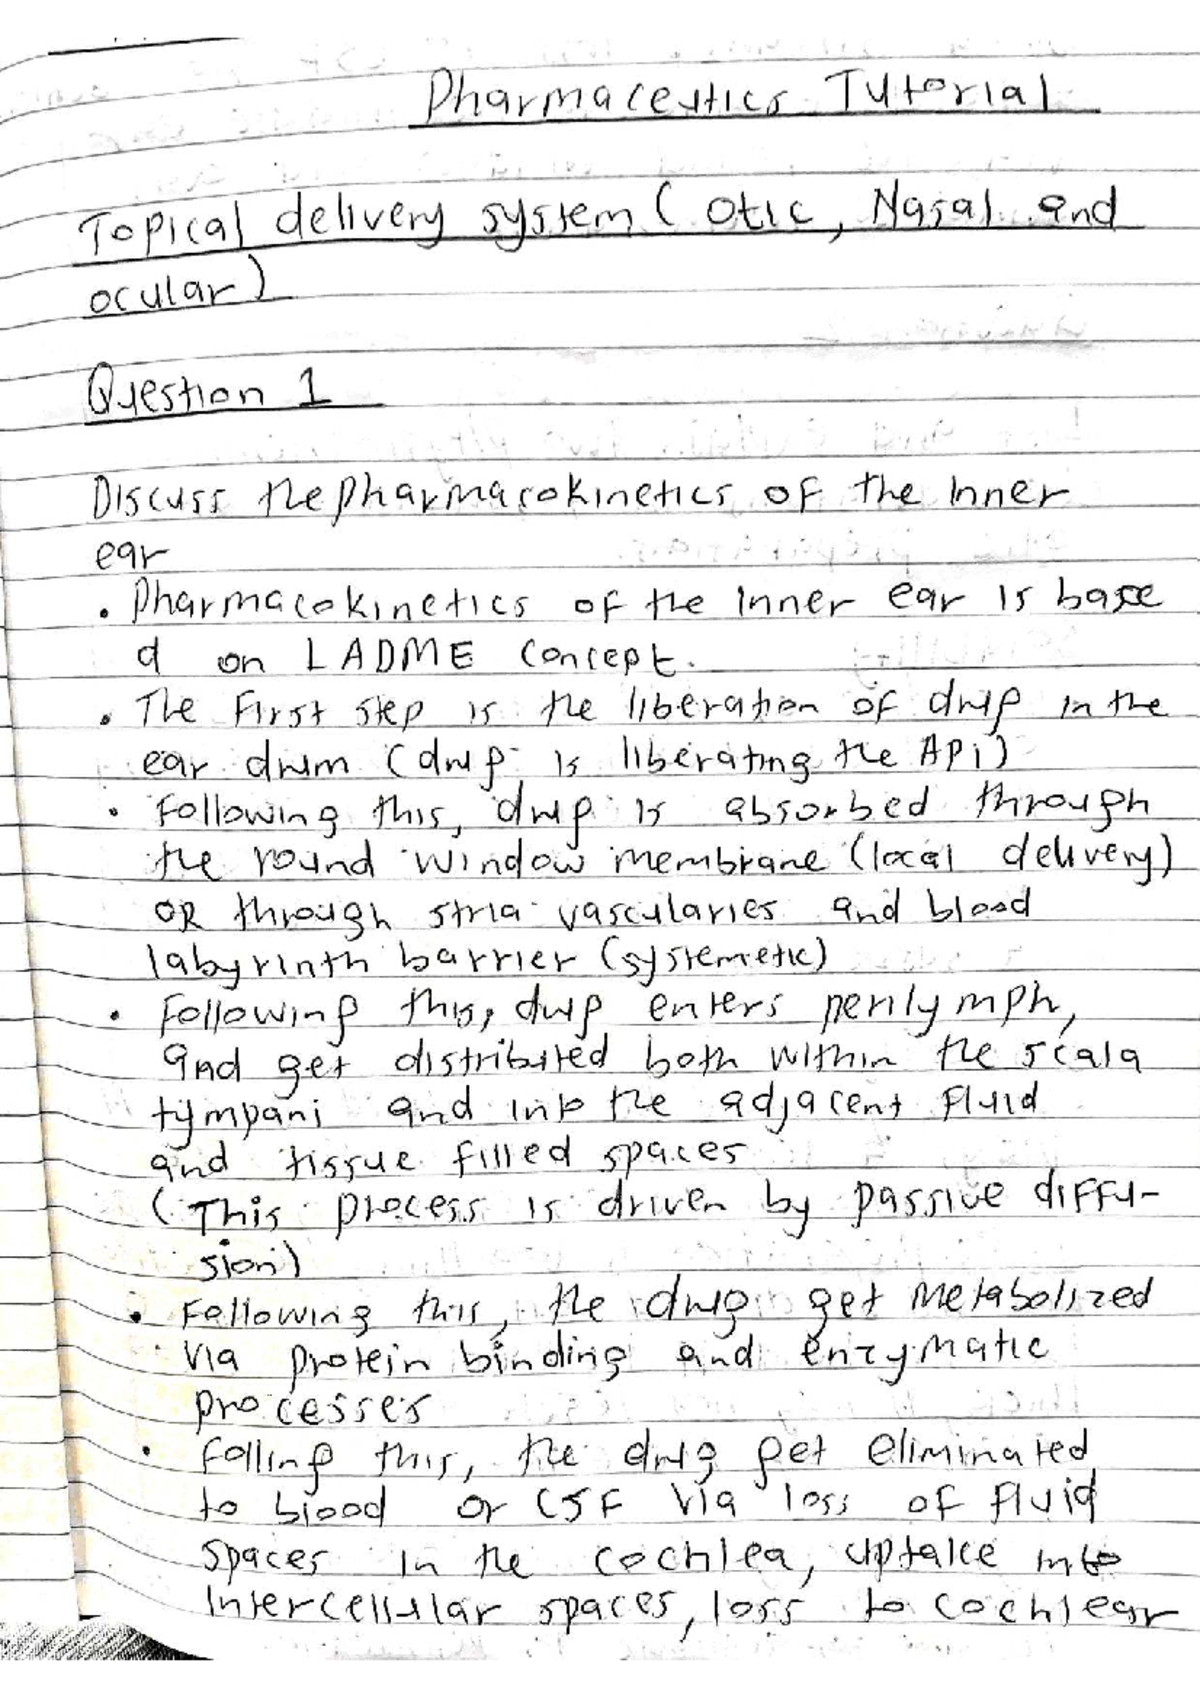 Pharmaceutics Tutorial
Topical delivery system ( Otic, Nasal and
ocular)
Question 1
Discuss the pharmacokinetics of the Inner
ear
• Pharmacokinetics of the Inner ear is base
d on LADME concept.
• The First step is the liberation of drug in the
ear drum (drug is liberating the API)
• Following this, drug is absorbed through
the round window membrane (local delivery)
OR through stria vascularies and blood
labyrinth barrier (systemetic)
• Following this, drug enters perilymph,
and get distributed both within the scala
tympani and into the adjacent Fluid
and tissue filled spaces
(This process is driven by passive diffu-
sion)
• Following this, the drug get Metabolized
via protein binding and enzymatic
processes
• Folling this, the drug get eliminated
to blood or CSF via loss of Fluid
spaces in the cochlea, uptake into
Intercellular spaces, loss to cochlear